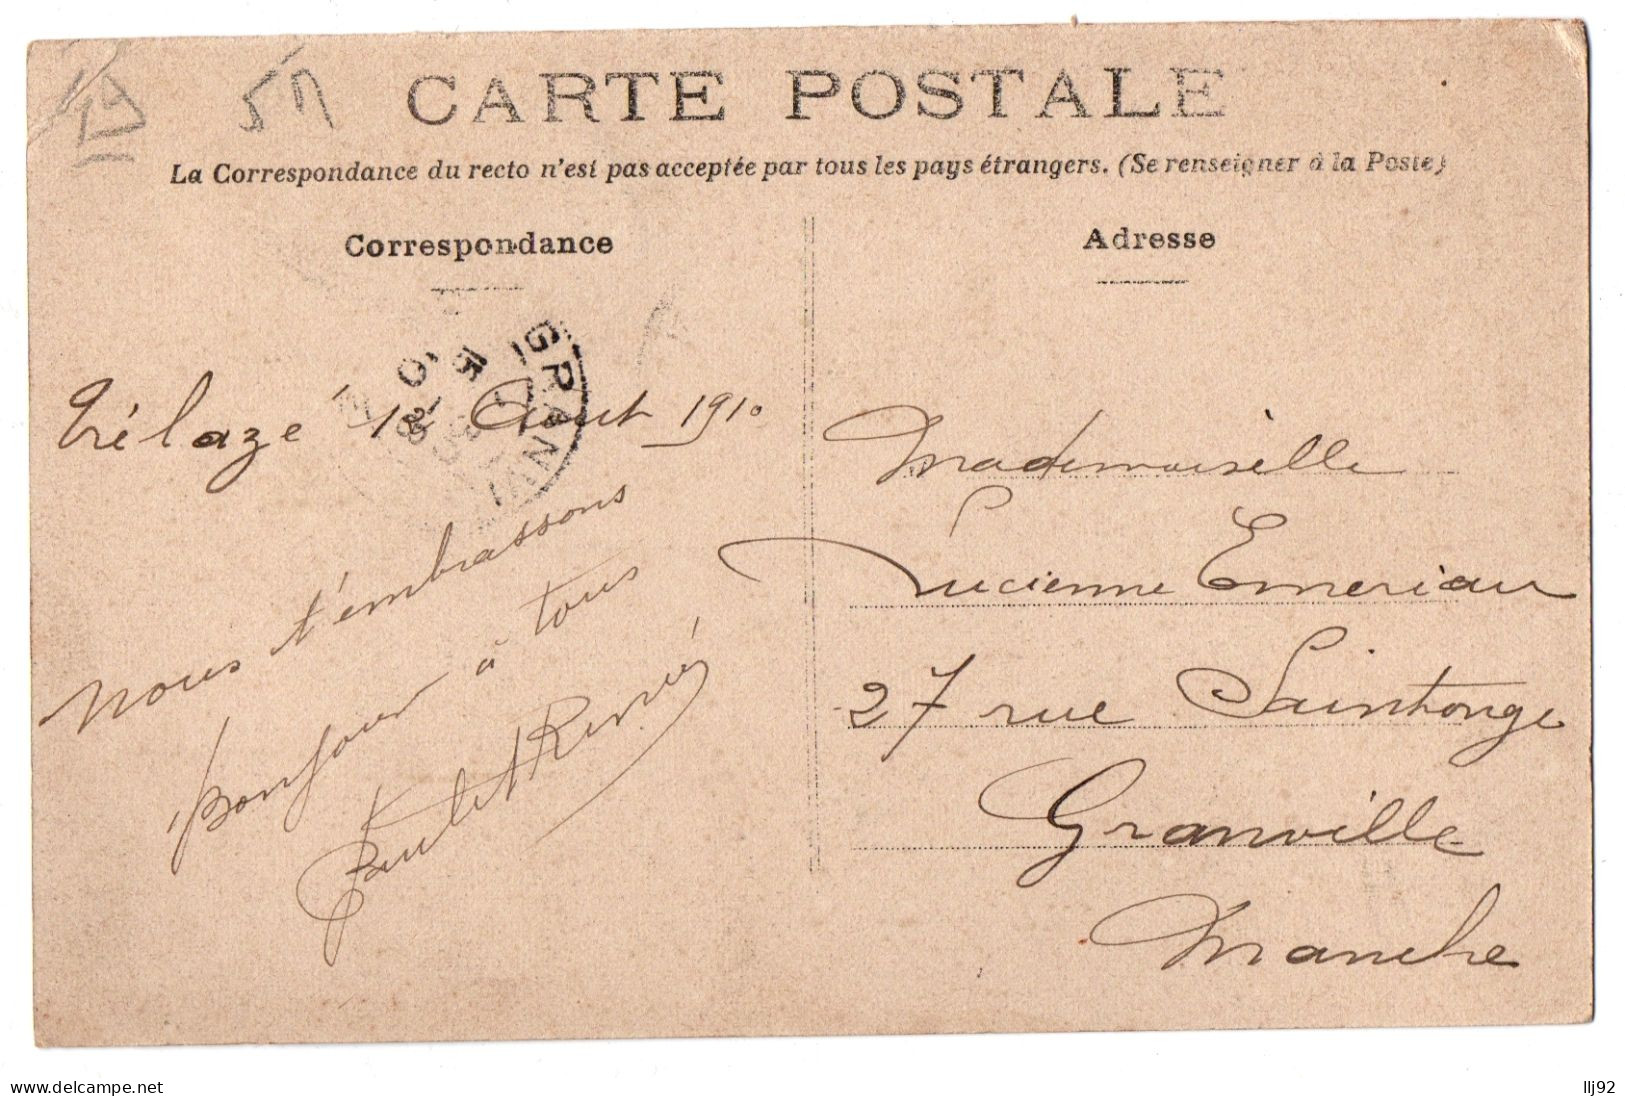 CARTE POSTALE
La Correspondance du recto n'est pas acceptée par tous les pays étrangers. (Se renseigner à la Poste)
Correspondance
Adresse
GRANVI
Trélaze 1 Aout 1910
Nous t'embrassons
bonjour à tous
Paul et René
Mademoiselle
Lucienne Emeriau
27 rue Saintonge
Granville
Manche
www.delcampe.net
llj92